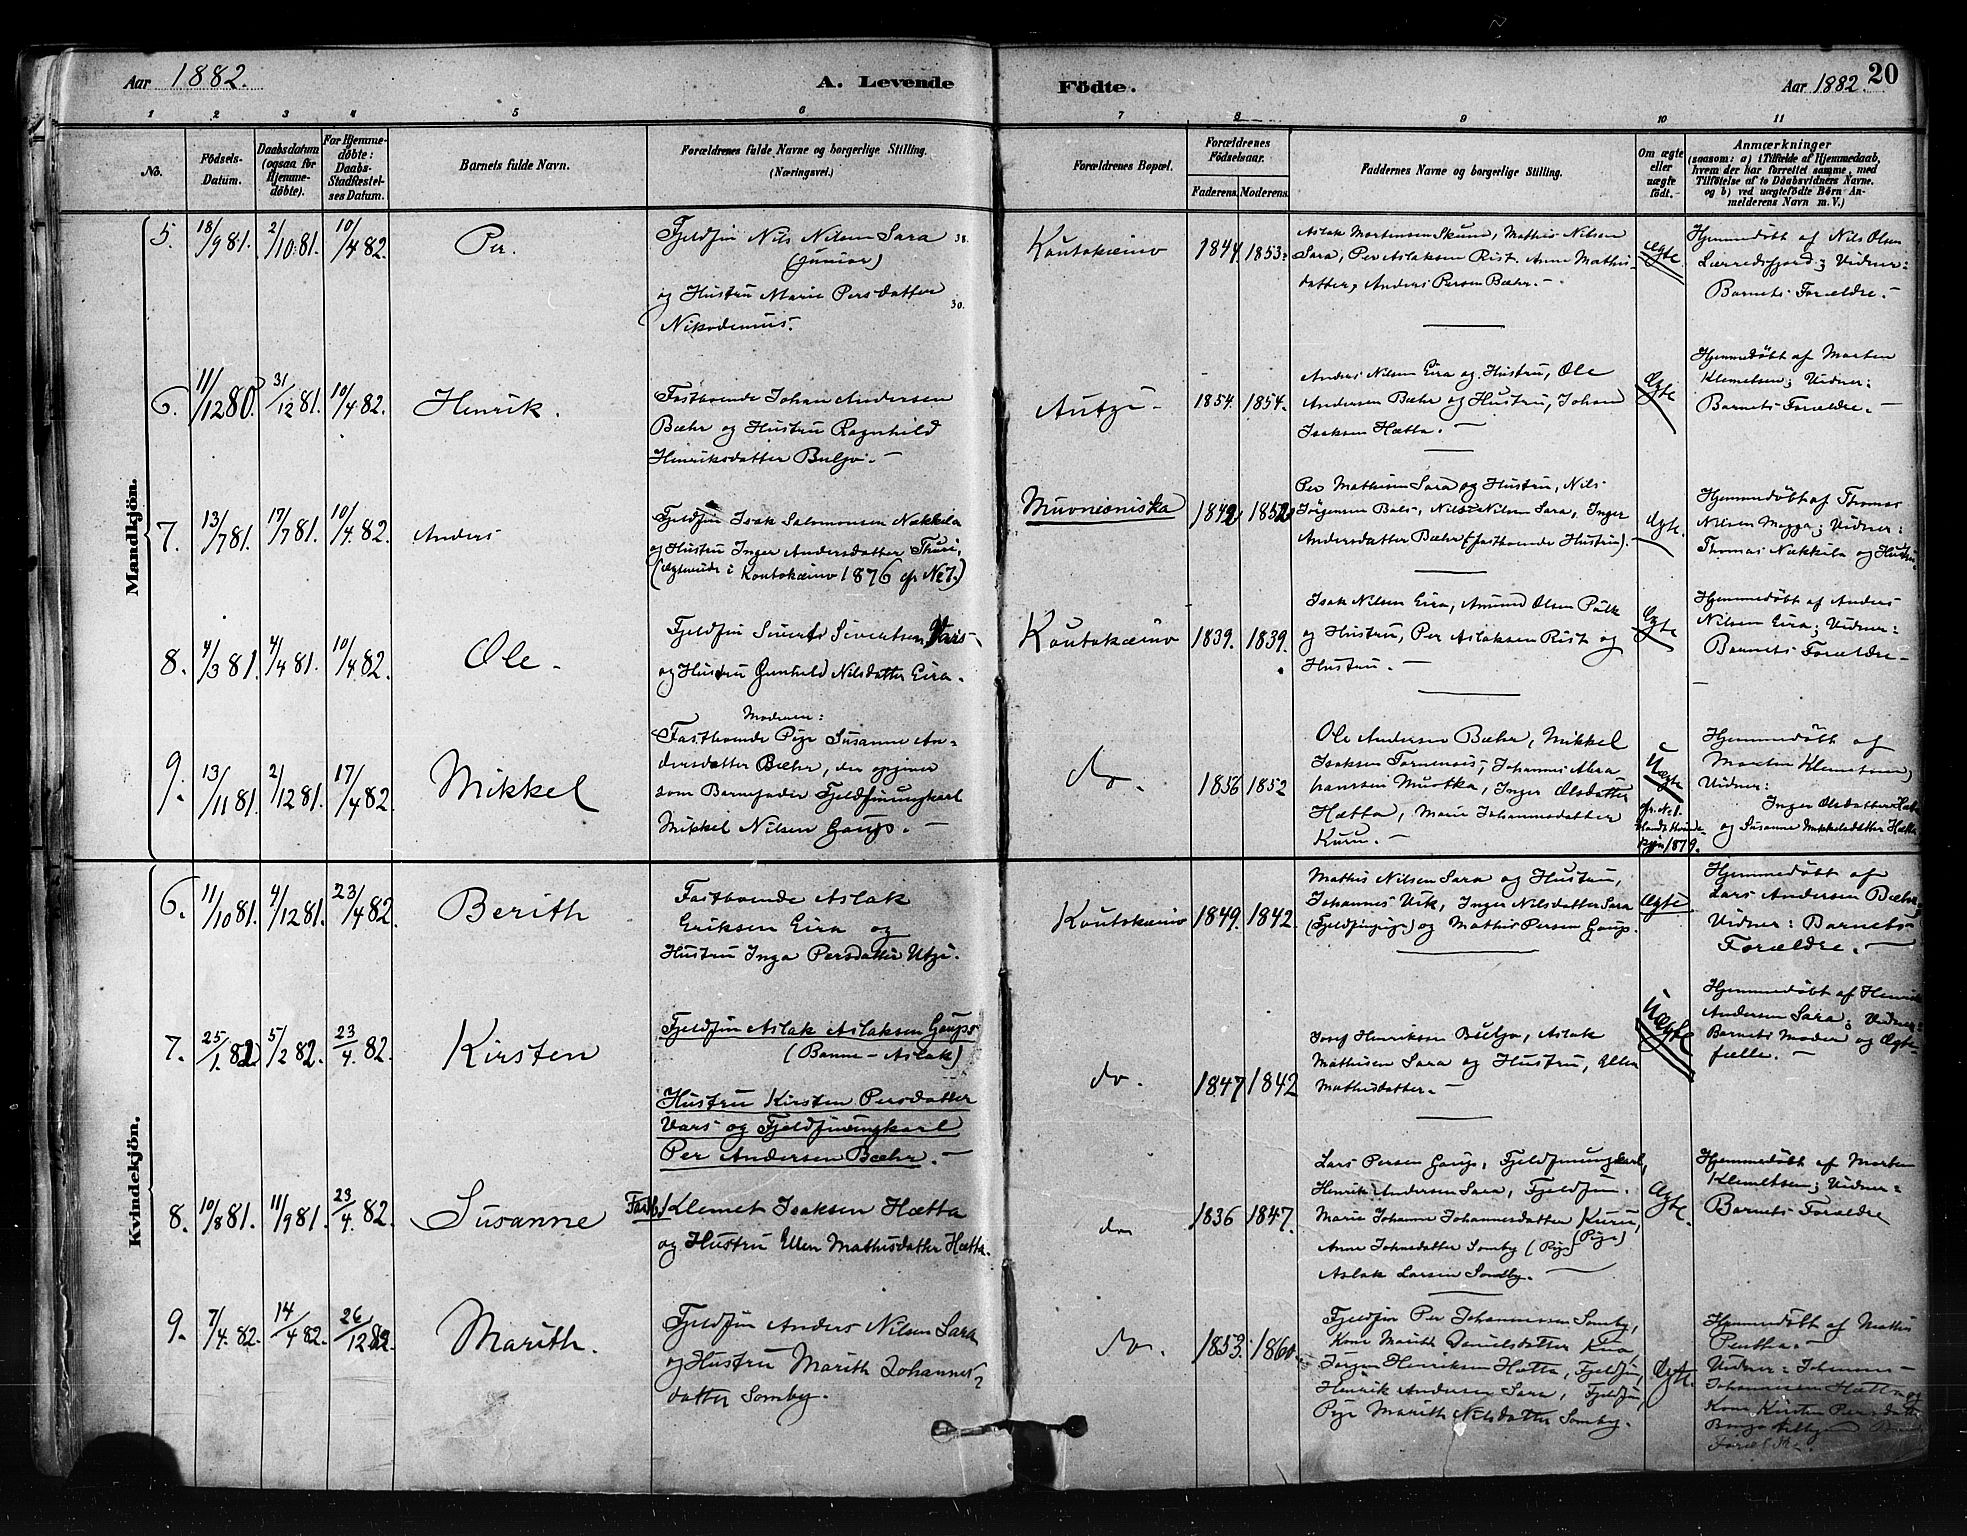 Aar 1882. A. Levende Fødte. Aar 1882. 20
1 2 3 4 5 6 7 8 9 10 11
No.
Fødsels-Datum.
Daabsdatum (ogsaa for Hjemmedøbte).
For Hjemmedøbte: Daabs-Stadfæstelses Datum.
Barnets fulde Navn.
Forældrenes fulde Navne og borgerlige Stilling.
(Næringsvei.)
Forældrenes Bopæl.
Forældrenes Fødselsaar.
Faderens. Moderens.
Faddernes Navne og borgerlige Stilling.
Om ægte eller uægte født.
Anmærkninger
(saasom: a) i Tilfælde af Hjemmedaab,
hvem der har forrettet samme, med
Tilføielse af to Daabsvidners Navne.
og b) ved uægtefødte Børn An-
melderens Navn m. V.)
Mandkjön.
5. 18/9 81. 2/10 81. 10/4 82. Per.
Fjeldfin Nils Nilsen Sara 38.
(junior)
og Hustru Marie Persdatter 30.
Nikodemus.
Koutokæino 1844. 1853.
Aslak Mortensen Skum, Mathis Nilsen
Sara, Per Aslaksen Rist. Anne Mathis-
datter, Anders Persen Bæhr. -
Ægte.
Hjemmedøbt af Nils Olsen
Lerredsfjord; Vidner:
Barnets Forældre. -
6. 11/12 80. 31/12 81. 10/4 82. Henrik.
Fastboende Johan Andersen
Bæhr og Hustru Ragnhild
Henriksdatter Buljo. -
Autzi - 1854. 1854.
Anders Nilsen Eira og Hustru, Ole
Andersen Bæhr og Hustru, Johan
Isaksen Hætta. -
Ægte
Hjemmedøbt af Morten
Klemetsen; Vidner:
Barnets Forældre. -
7. 13/7 81. 17/7 81. 10/4 82. Anders
Fjeldfin Isak Salomonsen Nækkila
og Hustru Inger Andersdatter Thuri.
(ægteviede i Koutokæino 1876 cfr No 7.)
Muvnesniska 1842 1852
Per Mathisen Sara og Hustru, Nils
Jörgensen Bals, Nils Nilsen Sara, Inger
Andersdatter Bæhr (fastboende Hustru).
Ægte.
Hjemmedöbt af Thomas
Nilsen Magga; Vidner:
Thomas Nækkila og Hustru
8. 4/3 81. 4/4 81. 10/4 82. Ole.
Fjeldfin Siverts Sivertsen Vars
og Hustru Gunhild Nilsdatter Eira.
Koutokæino 1839. 1839.
Isak Nilsen Eira, Amund Olsen Pulk
og Hustru, Per Aslaksen Rist og
Hustru. -
Ægte
Hjemmedøbt af Anders
Nilsen Eira; Vidner:
Barnets Forældre -
9. 13/11 81. 2/12 81. 17/4 82. Mikkel
Moderen:
Fastboende Pige Susanne An-
dersdatter Bæhr, der opgiver
som Barnefader Fjeldfinungkarl
Mikkel Nilsen Gaup. -
do. 1856 1852
Ole Andersen Bæhr, Mikkel
Isaksen Tornensis, Johannes Abra
hamsen Muotka, Inger Olsdatter
Hætta, Marie Johannesdatter
Kuru. -
Uægte
cfr. No 1.
1879.
Hjemmedøbt af
Morten Klemetsen,
Vidner:
Inger Olsdatter Hætta
og Susanne Mikkelsdatter Hætta
Kvindekjön.
6. 11/10 81. 4/12 81. 23/4 82. Berith
Fastboende Aslak
Eriksen Eira og
Hustru Inga Persdatter Utzi.
Koutokæino 1849. 1842.
Mathis Nilsen Sara og Hustru,
Johannes Vik, Inger Nilsdatter Sara
(Fjeldfinpige) og Mathis Persen Gaup.
Ægte
Hjemmedøbt af
Lars Andersen Bæhr
Vidner: Barnets
Forældre. -
7. 25/1. 82 5/2 82. 23/4. 82. Kirsten
Fjeldfin Aslak Aslaksen Gaups
(Banne-Aslak)
Hustru Kirsten Persdatter
Vars og Fjeldfinungkarl
Per Andersen Bæhr. -
do. 1847 1842
Josef Henriksen Buljo, Aslak
Mathisen Sara og Hustru, Ellen
Mathisdatter. -
Uægte
Hjemmedøbt af Henrik
Andersen Sara; Vidner:
Barnets Moder og Ægte-
fælle. -
8. 10/8 81. 11/9 81. 23/4. 82. Susanne
Fastb. Klemet Isaksen Hætta
og Hustru Ellen Mathisdatter Hætta.
do 1836 1847.
Lars Persen Gaup, Fjeldfinungkarl,
Henrik Andersen Sara, Fjeldfin.
Marie Johanne Johannesdatter Kuru,
(Pige)
Anne Johnsdatter Somby (Pige)
Aslak Larsen Somby. -
Ægte.
Hjemmedøbt af Morten
Klemetsen; Vidner:
Barnets Forældre
9. 7/4. 82. 14/4 82. 26/12 82. Marith.
Fjeldfin Anders Nilsen Sara
og Hustru Marith Johannes-
datter Somby.
do. 1853. 1860.
Fjeldfin Per Johannessen Somby,
Kone Marith Danielsdatter
Jörgen Henriksen Hætta, Fjeldfin,
Henrik Andersen Sara, Fjeldfin,
Pige Marith Nilsdatter Somby.
Ægte.
Hjemmedøbt af Mathis
Pentha. -
Vidner: Johannes
Johannesen Hætta og
Kone Kirsten Persdatter